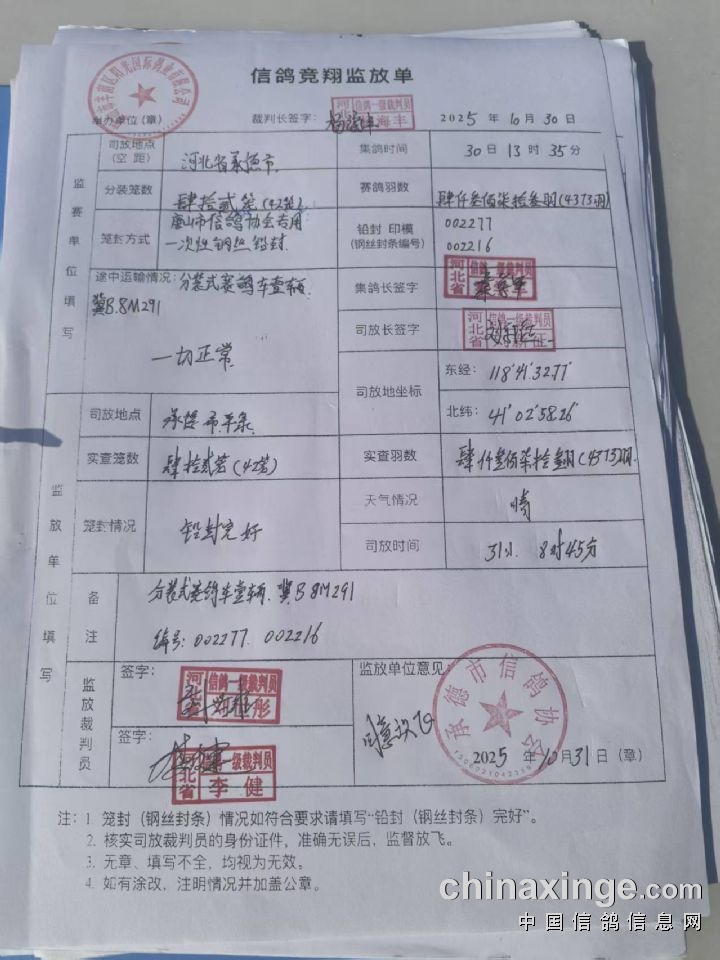 信鸽竞翔监放单
举办单位（章） 裁判长签字： 2025 年 10 月 30 日
河北 信鸽一级裁判员
监赛单位填写
司放地点（空 距） 河北省承德市 集鸽时间 30 日 13 时 35 分
分装笼数 肆拾贰笼（42笼） 赛鸽羽数 肆仟叁佰柒拾叁羽（4373羽）
笼封方式 唐山市信鸽协会专用一次性钢丝铅封 铅封 印模（钢丝封条编号） 002277
002216
途中运输情况：分装式赛鸽车壹辆
冀B.8M291
一切正常
集鸽长签字
河北省 信鸽一级裁判员
司放长签字
河北省 信鸽一级裁判员
司放地坐标 东经： 118°41′32.77″
北纬： 41°02′58.26″
监放单位填写
司放地点 承德市平泉
实查笼数 肆拾贰笼（42笼） 实查羽数 肆仟叁佰柒拾叁羽（4373）羽
笼封情况 铅封完好 天气情况 晴
司放时间 31日 8时45分
备注 分装式赛鸽车壹辆 冀B8M291
编号：002277 002216
监放裁判员
签字：
河北省 信鸽一级裁判员
签字：
河北省 一级裁判员 李健
监放单位意见：
同意放飞
承德市信鸽协会
2025 年 10 月 31 日（章）
注：1. 笼封（钢丝封条）情况如符合要求请填写“铅封（钢丝封条）完好”。
2. 核实司放裁判员的身份证件，准确无误后，监督放飞。
3. 无章、填写不全，均视为无效。
4. 如有涂改，注明情况并加盖公章。
chinaxinge.com
中国信鸽信息网